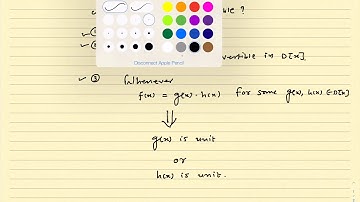 ble ?
✓ ①
Disconnect Apple Pencil
vertible in D[x]
✓ ③ Whenever
f(x) = g(x) · h(x) for some g(x), h(x) ∈ D[x]
⇓
g(x) is unit
or
h(x) is unit.